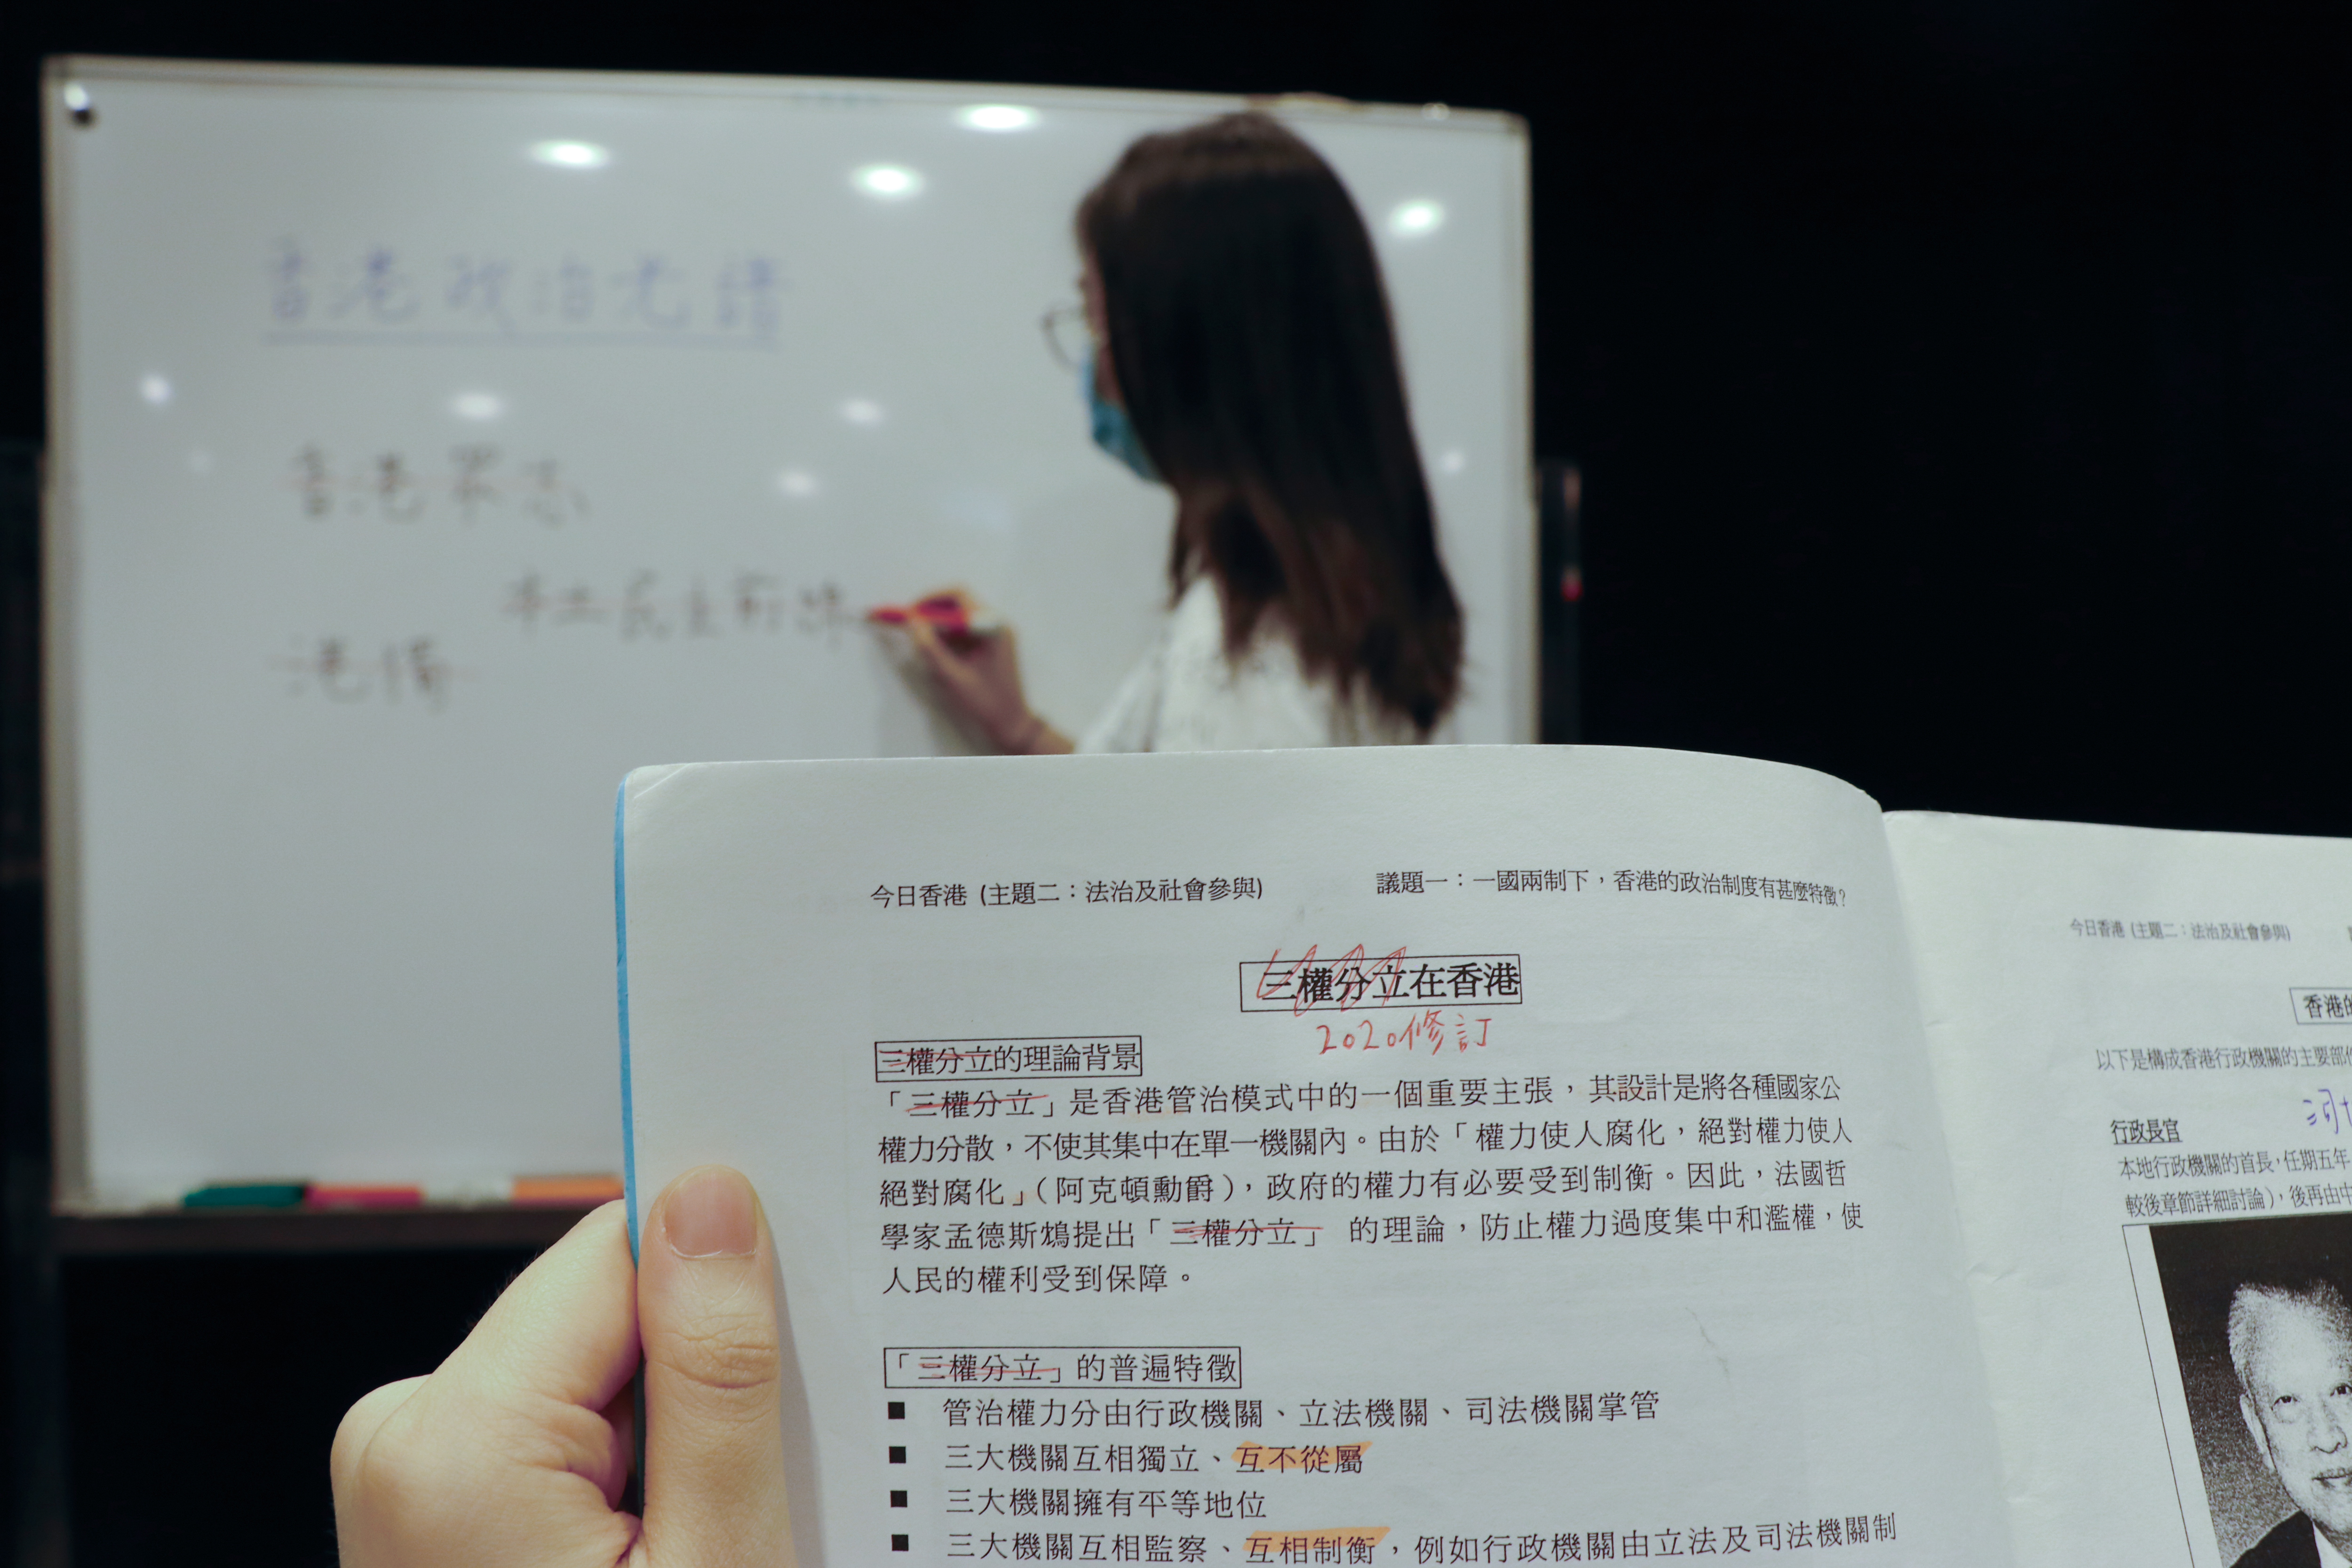 香港政治光譜
香港眾志
本土民主前線
港獨
今日香港 (主題二：法治及社會參與)
議題一：一國兩制下，香港的政治制度有甚麼特徵？
三權分立在香港
2020修訂
三權分立的理論背景
「三權分立」是香港管治模式中的一個重要主張，其設計是將各種國家公
權力分散，不使其集中在單一機關內。由於「權力使人腐化，絕對權力使人
絕對腐化」（阿克頓勳爵），政府的權力有必要受到制衡。因此，法國哲
學家孟德斯鳩提出「三權分立」 的理論，防止權力過度集中和濫權，使
人民的權利受到保障。
「三權分立」的普遍特徵
■ 管治權力分由行政機關、立法機關、司法機關掌管
■ 三大機關互相獨立、互不從屬
■ 三大機關擁有平等地位
■ 三大機關互相監察、互相制衡，例如行政機關由立法及司法機關制
今日香港 (主題二：法治及社會參與)
香港的
以下是構成香港行政機關的主要部
行政長官
本地行政機關的首長，任期五年
較後章節詳細討論），後再由中